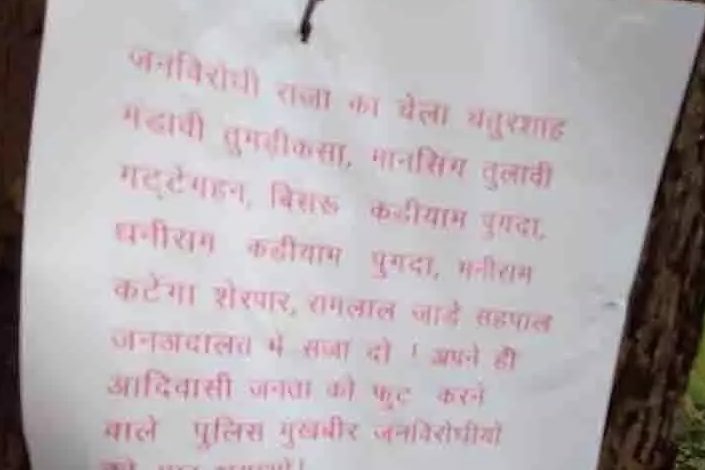 जनविरोधी राजा का चेला चतुरशाह
मडावी तुमडीकसा, मानसिग तुलावी
गट्टेगहन, बिसरू कडीयाम पुगदा,
धनीराम कडीयाम पुगदा, मनीराम
कटेंगा शेरपार, रामलाल जाडे सहपाल
जनअदालत में सजा दो ! अपने ही
आदिवासी जनता को फुट करने
वाले पुलिस मुखबीर जनविरोधीयो
को मार भगाओ!